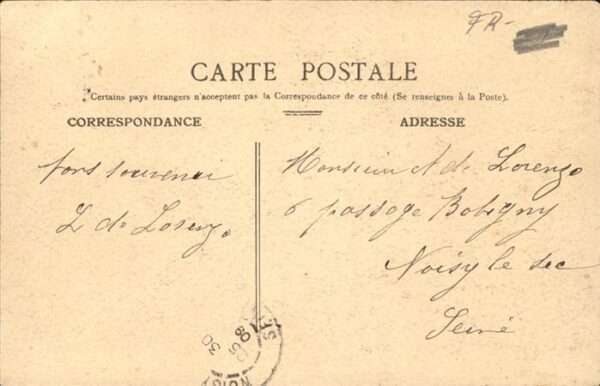 FR-
CARTE POSTALE
Certains pays étrangers n'acceptent pas la Correspondance de ce côté (Se renseignes à la Poste).
CORRESPONDANCE
ADRESSE
souvenir
L de Lorenzo
Monsieur A de Lorenzo
6 passage Bobigny
Noisy le sec
Seine
30